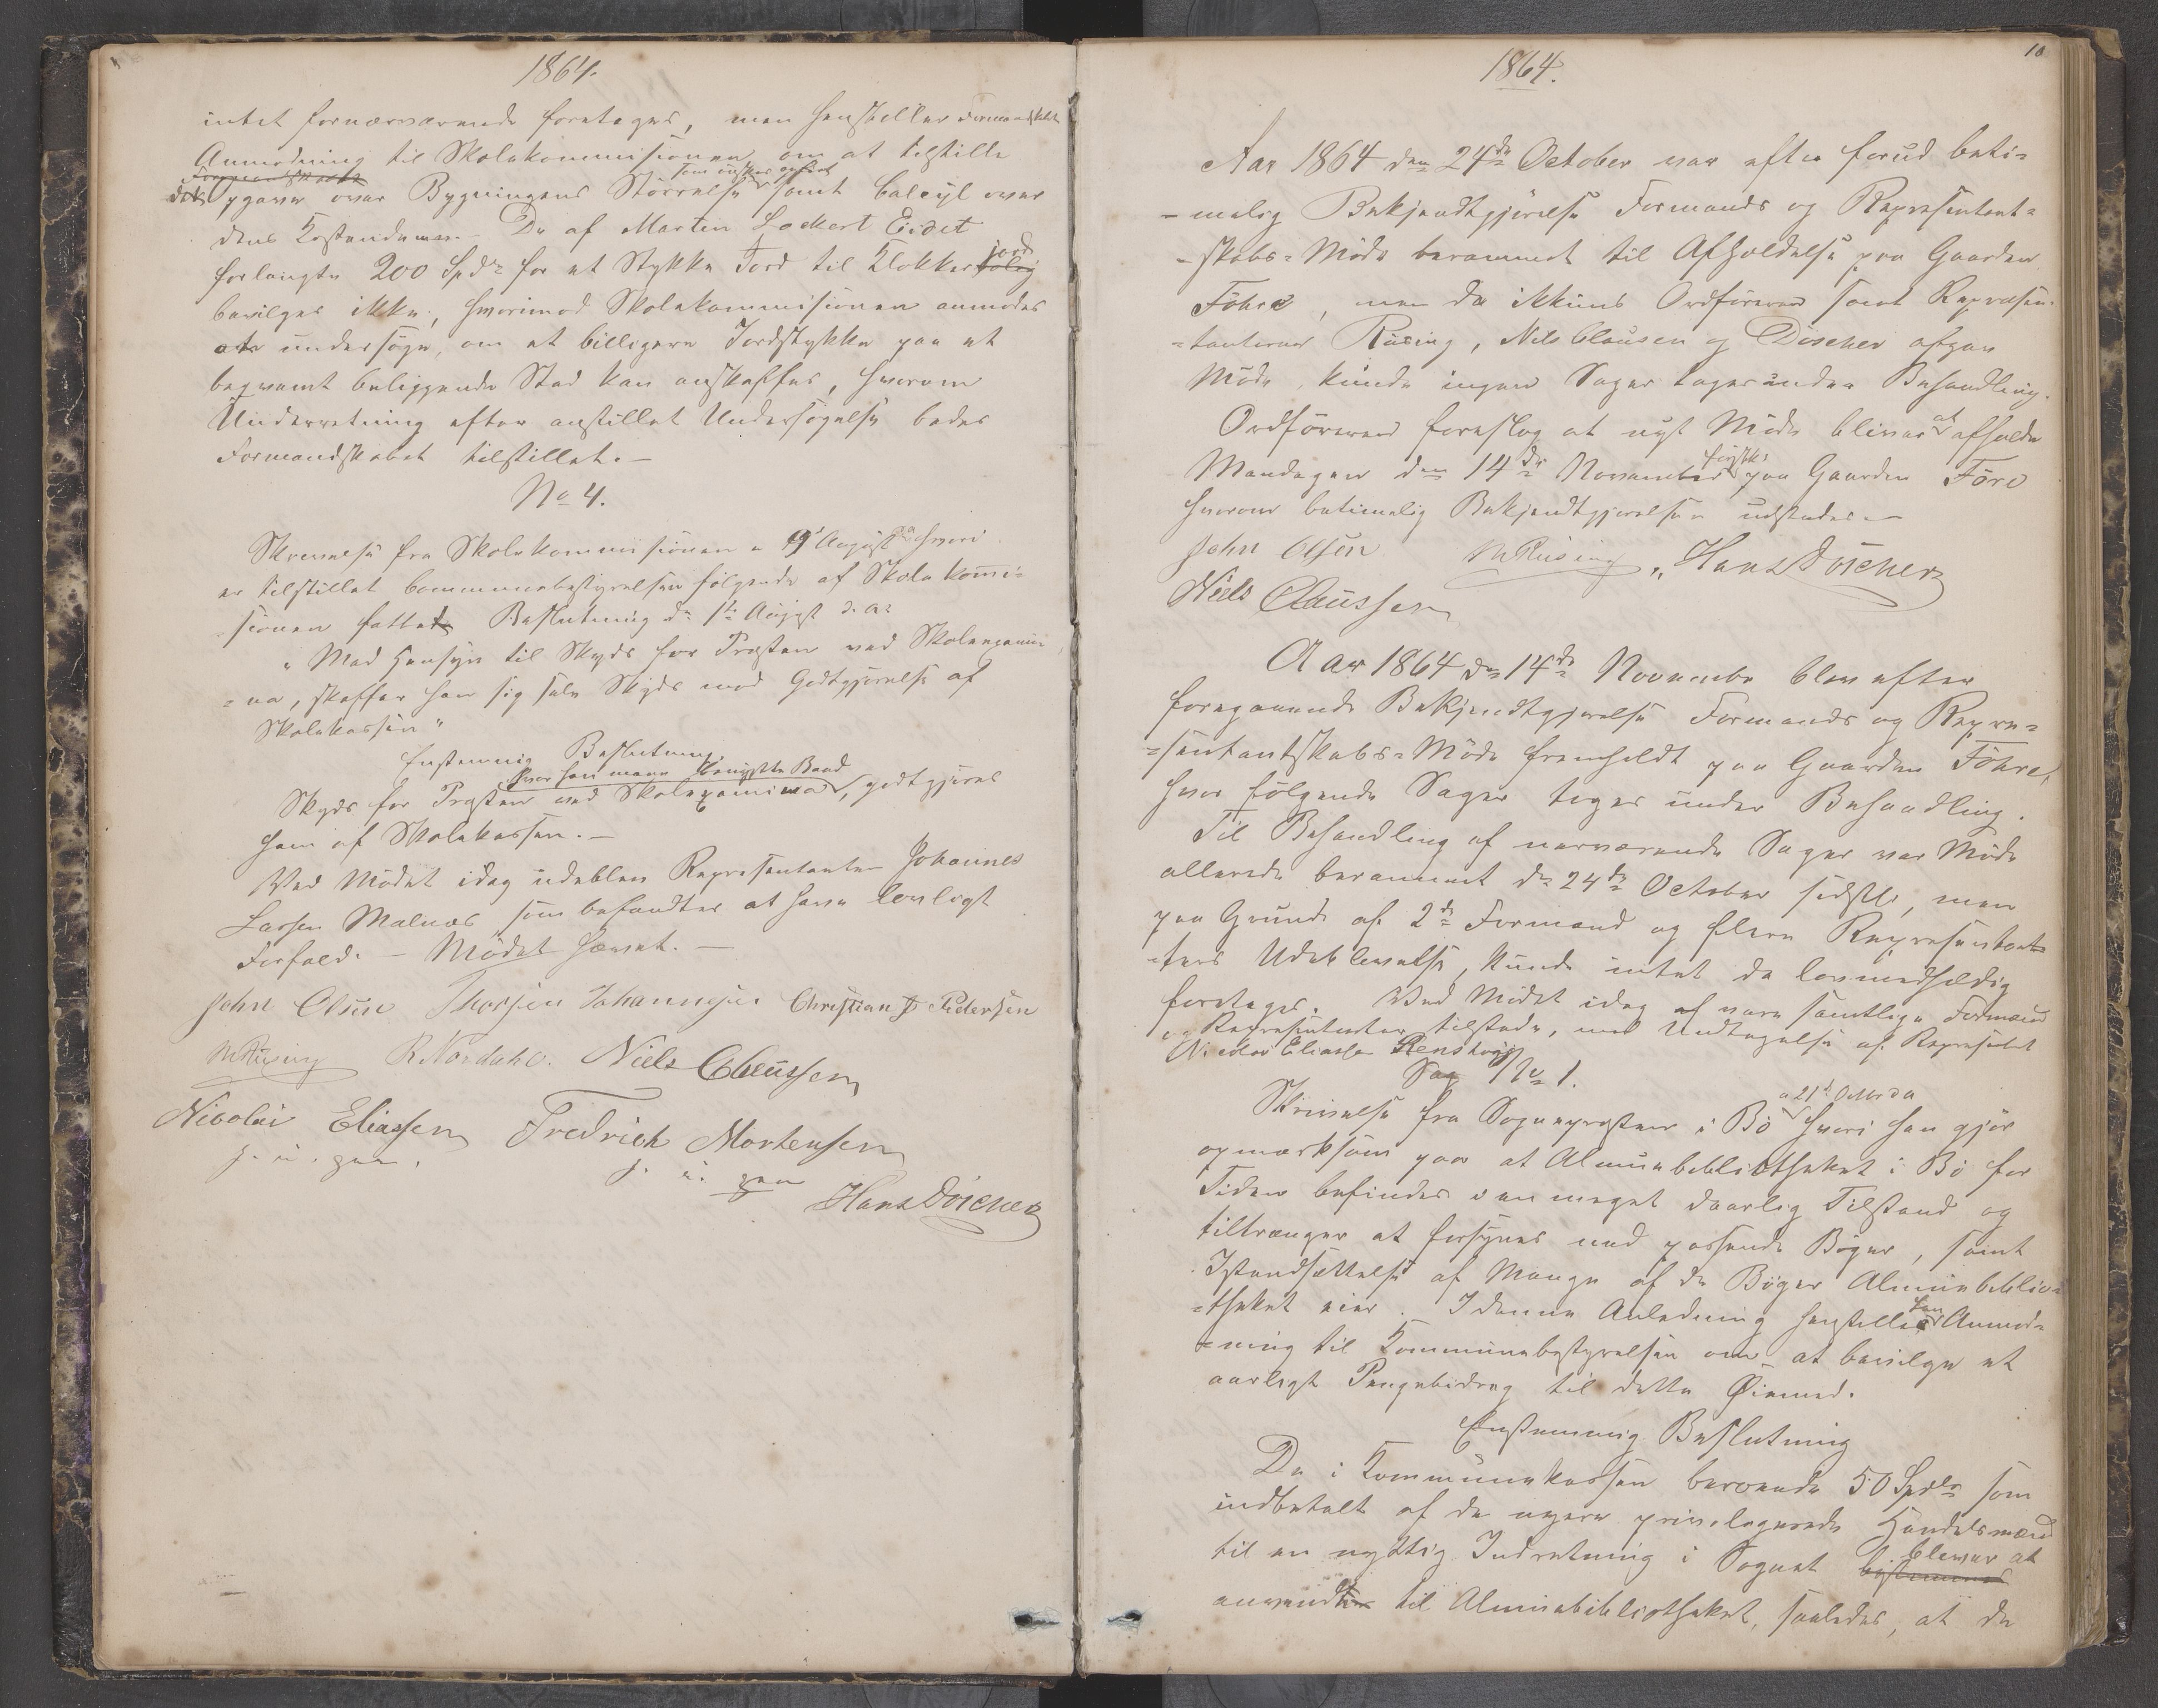 1864.
intet fornærværende foretages, men henstiller Formandskabet
Anmodning til Skolekommissionen om at tilstille
Formandskabet
som ønskes opført
det Opgave over Bygningens Størrelse samt Calcyl over
dens Kostende. De af Morten Lockert Eidet
forlangte 200 Spdr for et Stykke Jord til Klokkerjord
bevilges ikke, hvorimod Skolekommissionen anmodes
at undersøge, om et billigere Jordstykke paa et
beqvemt beliggende Sted kan anskaffes, hvorom
Underretning efter anstillet Undersøgelse bedes
Formandskabet tilstillet.-
No 4.
Skrivelse fra Skolekommissionen a 9de August da hvori
er tilstillet Communebestyrelsen følgende af Skolekomi-
sionen fattede Beslutning dn 1ste August d. A:
"Med Hensyn til Skyds for Præsten ved Skoleexami-
-na, skaffer han sig selv Skyds mod Godtgjørelse af
Skolekassen"
Enstemmig Beslutning
hvor han maae benytte Baad
Skyds for Præsten ved Skoleexamina, godtgjøres
ham af Skolekassen.-
Ved Mødet idag udeblev Repræsentanten Johannes
Larsen Malnæs som befandtes at have lovligt
Forfald. - Mødet hævet.-
John Olsen Thorsten Johannesen Christian P Pedersen
M Rüsing R Nordahl. Niels Claussen
Nicolai Eliassen Fredrich Mortensen
h. i. pen. h. i. pen
Hans Döscher
10
1864.
Aar 1864 den 24de October var efter forud beti-
-melig Bekjendtgjørelse Formands og Repræsentant-
-skabs-Møde berammet til Afholdelse paa Gaarden
Föhre, men da ikkuns Ordføreren samt Repræsen-
-tanterne Rüsing, Nils Clausen og Döscher afgav
Møde, kunde ingen Sager tages under Behandling.
Ordføreren foreslog at nyt Møde bliver at afholde
Mandagen den 14de November førstk. paa Gaarden Före
hvorom betimelig Bekjendtgjørelse udstedes.-
John Olsen M Rüsing, Hans Döscher
Niels Claussen
Aar 1864 dn 14de November blev efter
foregaaende Bekjendtgjørelse Formands og Repræ-
-sentantskabs-Møde fremholdt paa Gaarden Föhre,
hvor følgende Sager toges under Behandling.
Til Behandling af nærværende Sager var Møde
allerede berammet dn 24de October sidstl., men
paa Grund af 2de Formænd og flere Repræsentan-
-ters Udeblevelse, kunde intet da lovmedholdig
foretages. Ved Mødet idag af vare samtlige Formænd
og Repræsentanter tilstede, med Undtagelse af Repræsentet
Nicolai Eliassen Steenshoug
Sag No 1.
a 21de Octbr da
Skrivelse fra Sognepræsten i Bø hvori han gjør
opmærksom paa at Almuebibliotheket i Bø for
Tiden befindes i en meget daarlig Tilstand og
tiltrænger at forsynes med passende Bøger, samt
Istandsættelse af Mange af de Bøger Almuebiblio-
-theket eier. I denne Anledning henstiller han Anmod-
-ning til Kommunebestyrelsen om at bevilge et
aarligt Pengebidrag til dette Øiemed.
Enstemmig Beslutning
De i Kommunekassen beroende 50 Spdlr som
indbetalt af de nyere privilegerede Handelsmænd
til en nyttig Indretning i Sognet bestemmes bliver at
anvendte til Almuebibliotheket, saaledes, at de